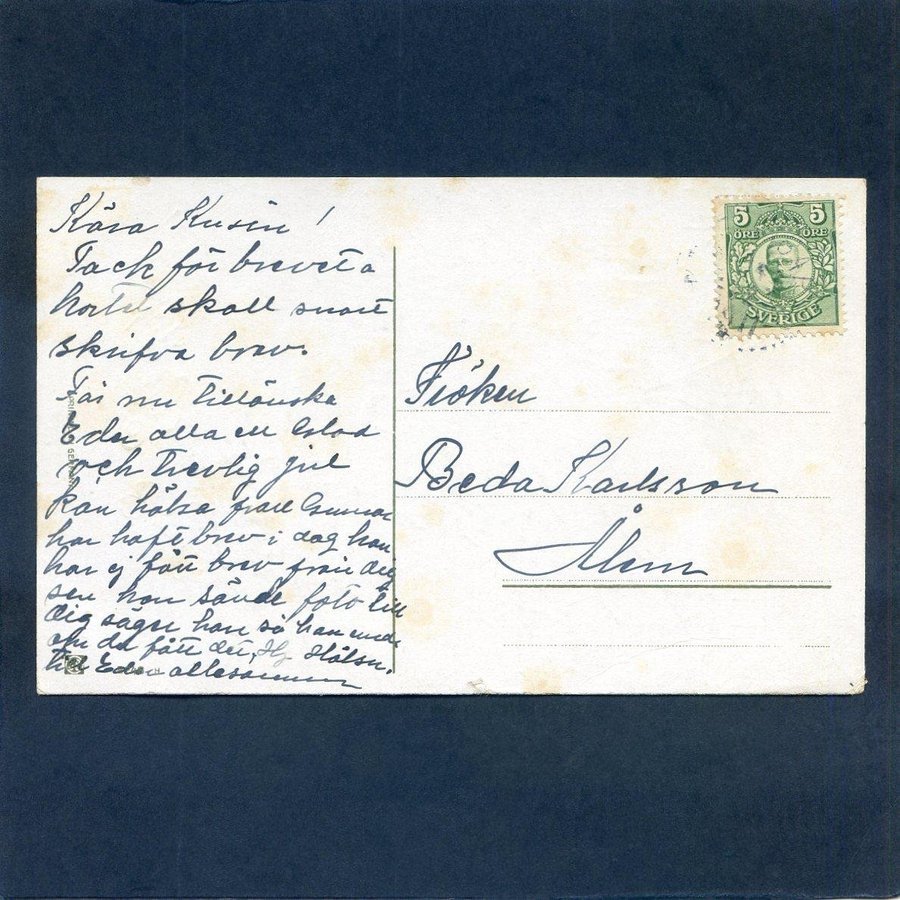 Kära Kusin!
Tack för brevet a
kortet skall snart
skrifva brev.
Får nu tillönska
Eder alla en Glad
och Trevlig jul
kan hälsa från Gunnar
har haft brev i dag han
har ej fått brev från dig
sen han sände foto till
dig säger han så han undr
om du fått det, Hj Hälsn.
till Eder allesamman
5 5
ÖRE ÖRE
SVERIGE
Fröken
Beda Karlsson
Ålem